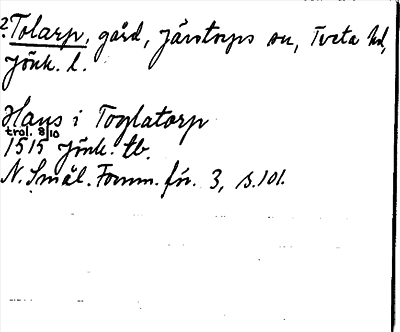 ? Tolarp, gård, Järstorps sn, Tveta hd,
Jönk. l.
Hans i Toglatorp
trol. 8/10
1515 Jönk. tb.
N. Smål. Fornm. för. 3, s. 101.